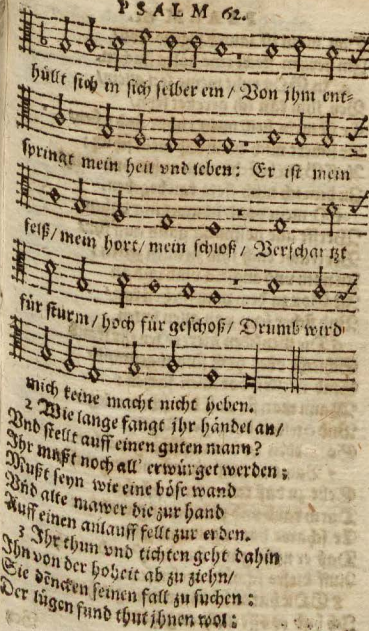 PSALM 62.
hüllt sich in sich selber ein / Von jhm ent-
springt mein heil vnd leben: Er ist mein
felß / mein hort / mein schloß / Verschantzt
für sturm / hoch für geschoß / Drumb wird
mich keine macht nicht heben.
2 Wie lange fangt jhr händel an /
Vnd stellt auff einen guten mann?
Jhr müßt noch all' erwürget werden;
Mußt seyn wie eine böse wand
Vnd alte mawer die zur hand
Auff einen anlauff fellt zur erden.
3 Jhr thun vnd tichten geht dahin
Jhn von der hoheit ab zu ziehn /
Sie dencken seinen fall zu suchen:
Der lügen fund thut jhnen wol: